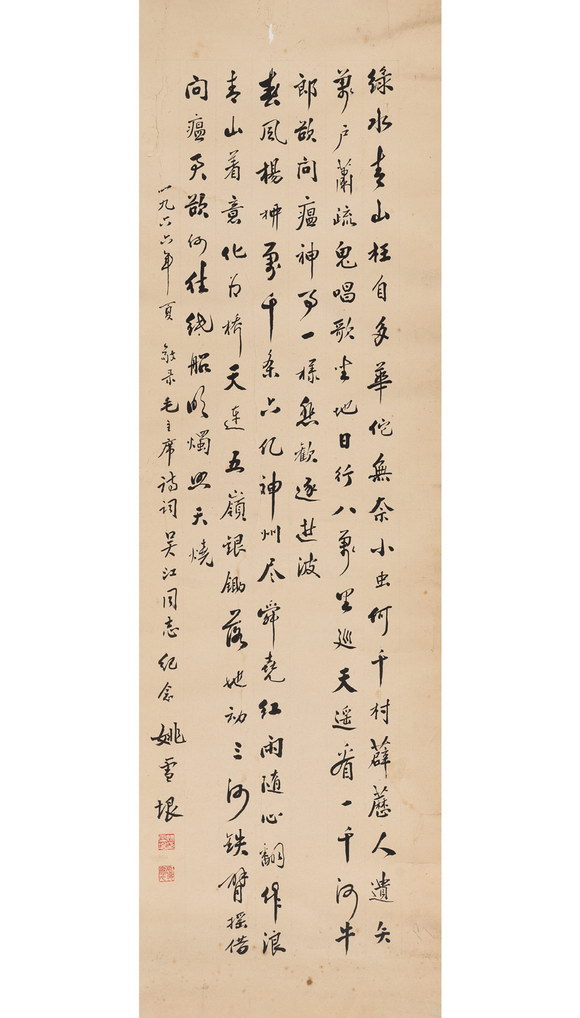 綠水青山枉自多華佗無奈小虫何千村薜藶人遺矢
萬戶蕭疏鬼唱歌坐地日行八萬里巡天遥看一千河牛
郎欲问瘟神事一樣悲歡逐逝波
春風楊柳萬千条六亿神州尽舜堯红雨随心翻作浪
青山着意化为桥天連五嶺银鋤落地动三河铁臂摇借
问瘟君欲何往纸船明燭照天燒
一九六六年夏 敬录毛主席诗词 吴江同志纪念 姚雪垠